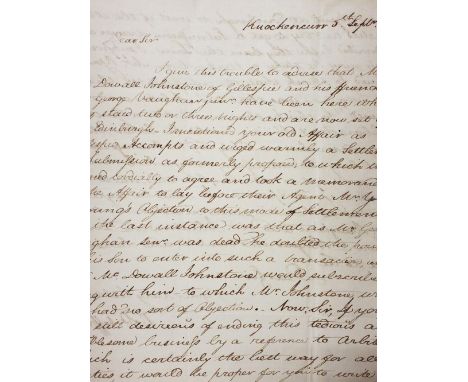 Knockencurr 5th Septr
ear Sir
I give this trouble to advise that M
Dowall Johnstone of Gillespie and his friend
George Vaughan junr. have been here wh
y staid two or three nights and are now set
Edinburgh. I mentioned your old Affair as
Accompts and urged warmly a Settle
Submission as formerly proposed to which t
ed cordially to agree and took a memoran
he Affair to lay before their Agent Mr. Y
ung's Objection to this mode of Settlement
the last instance was that as Mr. G
ghan senr. was dead he doubted the pow
is Son to enter into such a transaction
Mc.Dowall Johnstone would subscribe
g with him to which Mr. Johnstone
had no sort of Objections. Now, Sir, if yo
still desirous of ending this tedious a
blesome business by a reference to Arbit
hich is certainly the best way for all
ties it would be proper for you to write